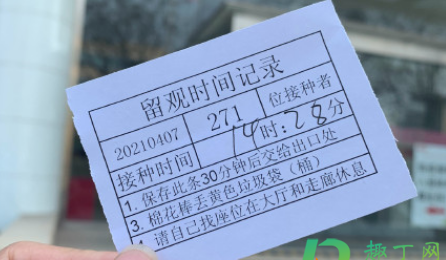 留观时间记录
20210407 271 位接种者
接种时间 14时:28分
1. 保存此条30分钟后交给出口处
3. 棉花棒丢黄色垃圾袋（桶）
4. 请自己找座位在大厅和走廊休息
趣丁网